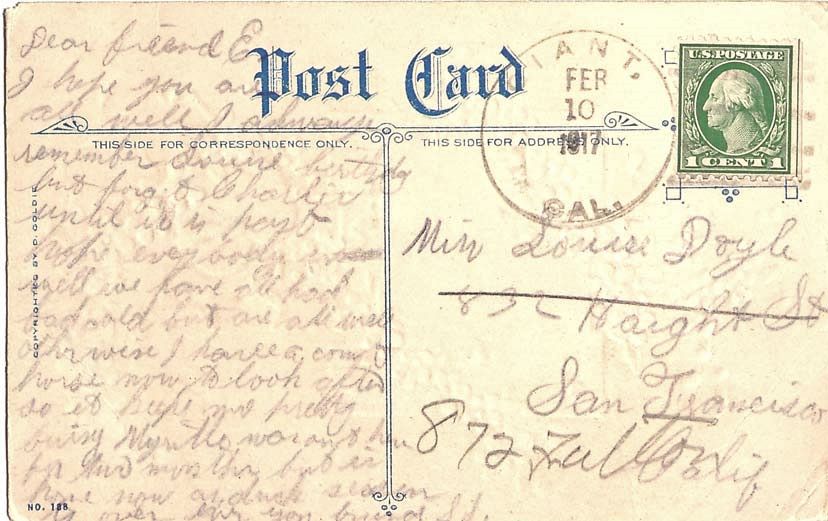 Dear friend E
I hope you are
all well I always
remember Louise birthday
but forget Charlie
until it is past
hope everybody
well we have all had
bad cold but are all well
otherwise I have a
horse now to look after
so it keeps me pretty
busy Myrtle
for two months but is
home now season
is over ever your friend
Post Card
THIS SIDE FOR CORRESPONDENCE ONLY.
THIS SIDE FOR ADDRESS ONLY.
COPYRIGHTED BY D. GOLDIE
NO. 188
GIANT,
FEB
10
1917
CAL.
U.S. POSTAGE
1 CENT 1
Miss Louise Doyle
832 Haight St
San Francisco
Calif
872 Fulton